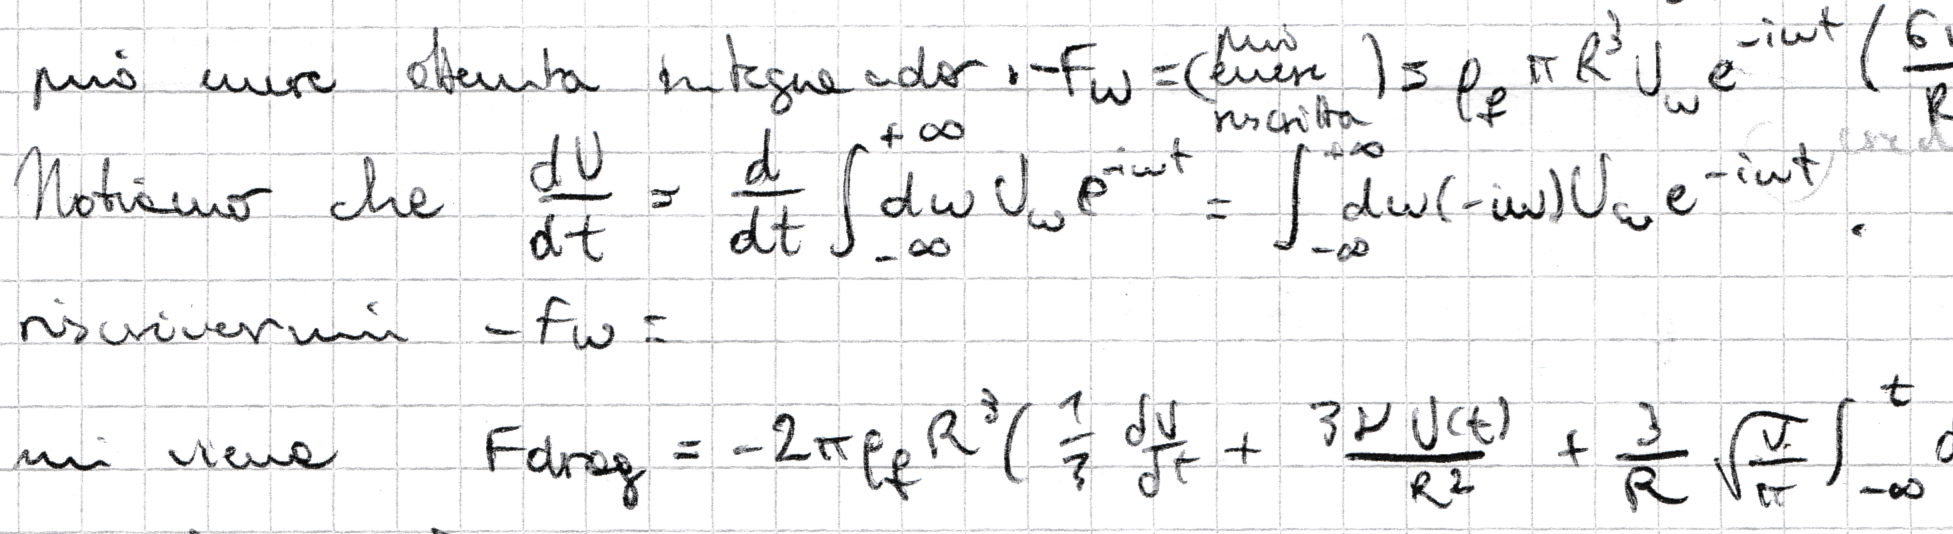 può essere ottenuta integrandor. -Fω = (può essere riscritta) = ρf π R³ Uω e^-iωt (6ν/R
Notiamo che dU/dt = d/dt ∫_-∞^+∞ dω Uω e^-iωt = ∫_-∞^+∞ dω(-iω)Uω e^-iωt .
riscrivermi -Fω =
mi viene Fdrag = -2πρf R³ ( 1/3 dU/dt + 3ν U(t)/R² + 3/R √(ν/π) ∫_-∞^t d